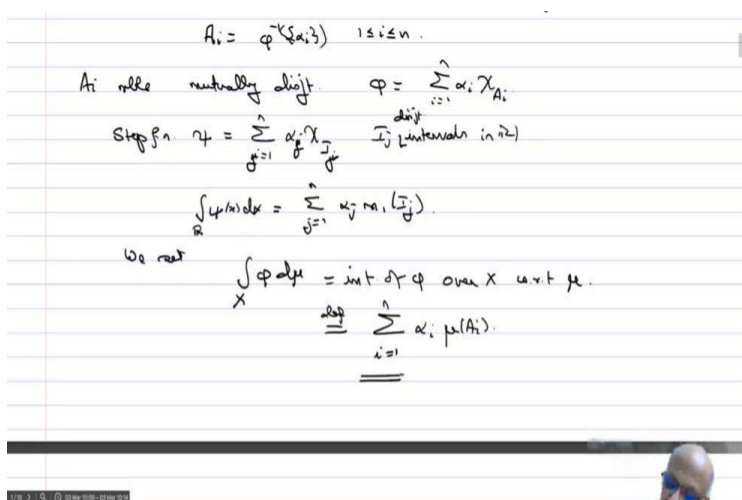 Ai = φ⁻¹({αi}) 1≤i≤n.
Ai mble mutually disjt. φ = Σ_{i=1}^{n} αi χ_{Ai}
Step fn. ψ = Σ_{j=1}^{n} αj χ_{Ij} Ij disjt intervals in ℝ)
∫_ℝ ψ(x)dx = Σ_{j=1}^{n} αj m₁(Ij).
We set
∫_X φ dμ = int of φ over X w.r.t μ.
def= Σ_{i=1}^{n} αi μ(Ai).